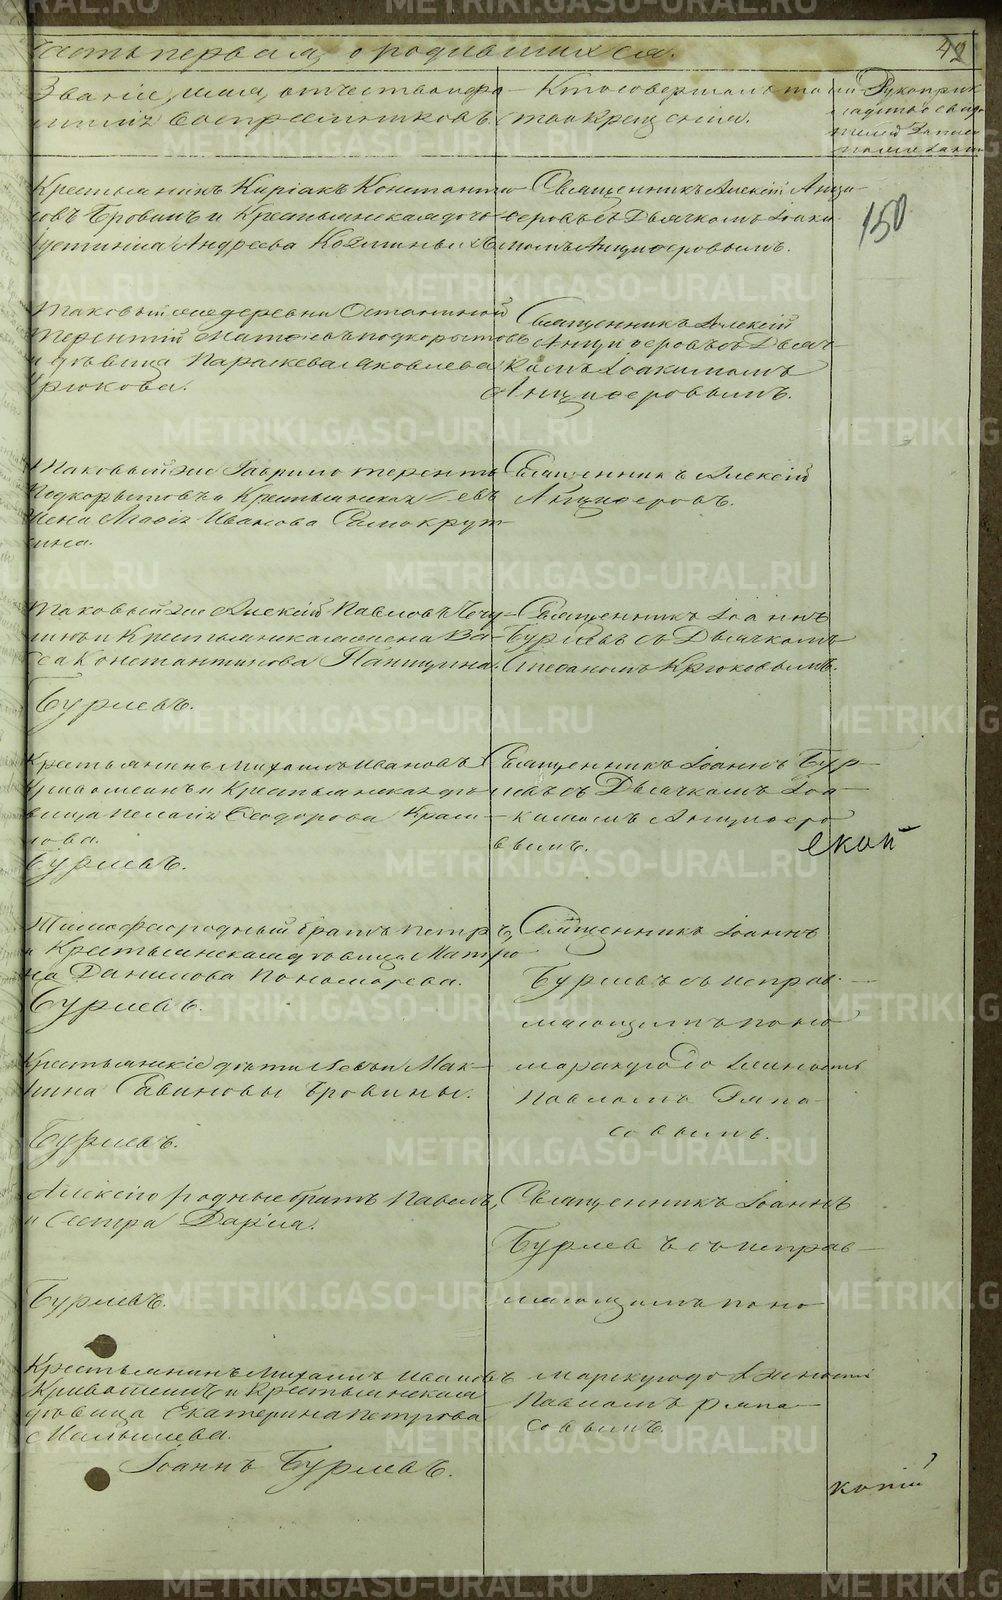 Часть первая, о родившихся.
42
Званіе, имя, отчество и фа-
милія воспріемниковъ.
Кто совершалъ та-
инство крещенія.
Рукоприк-
ладство свидѣ-
телей записи
Крестьянинъ Киріакъ Константи-
новъ Бровинъ и Крестьянская дочь
Устинья Андреева
Священникъ Алексій Анци-
феровъ съ Дьячкомъ Іоаки-
момъ Анциферовымъ.
150
Таковый же деревни Останиной
Терентій Подкорытовъ
и дѣвица Параскева Яковлева
Крюкова.
Священникъ Алексій
Анциферовъ съ Дьяч-
комъ Іоакимомъ
Анциферовымъ.
Таковый же Гаврило Терентье
Подкорытовъ и Крестьянская
жена Агафія Иванова Самокрут-
кина.
Священникъ Алексій
Анциферовъ.
Таковый же Алексій Павловъ
и Крестьянская жена Ва-
са Константинова Паншина.
Бурлевъ.
Священникъ Іоаннъ
Бурлевъ съ Дьячкомъ
Стефаномъ Крюковымъ.
Крестьянинъ Михаилъ Ивановъ
Кривошеинъ и Крестьянская дѣ-
вица Пелагія Ѳеодорова
Бурлевъ.
Священникъ Іоаннъ Бур-
левъ съ Дьячкомъ Іоа-
кимомъ Анциферо
вымъ.
екой
Тимофея родный братъ Петръ,
и Крестьянская дѣвица Матро
на Данилова Пономарева.
Бурлевъ.
Священникъ Іоаннъ
Бурлевъ съ исправ-
ляющимъ поно
марскую должность
Павломъ
Крестьянскіе дѣти Левъ и Мак-
рина Савиновы Бровины.
Бурлевъ.
Алексія родные братъ Павелъ,
и сестра Дарья.
Бурлевъ.
Священникъ Іоаннъ
Бурлевъ съ исправ-
ляющимъ поно
марскую должность
Павломъ
Крестьянинъ Михаилъ Ивановъ
Кривошеинъ и Крестьянская
дѣвица Екатерина Петрова
Малышева.
Іоаннъ Бурлевъ.
копій
METRIKI.GASO-URAL.RU